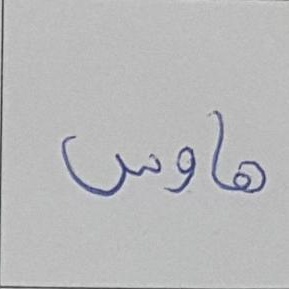 هاوس